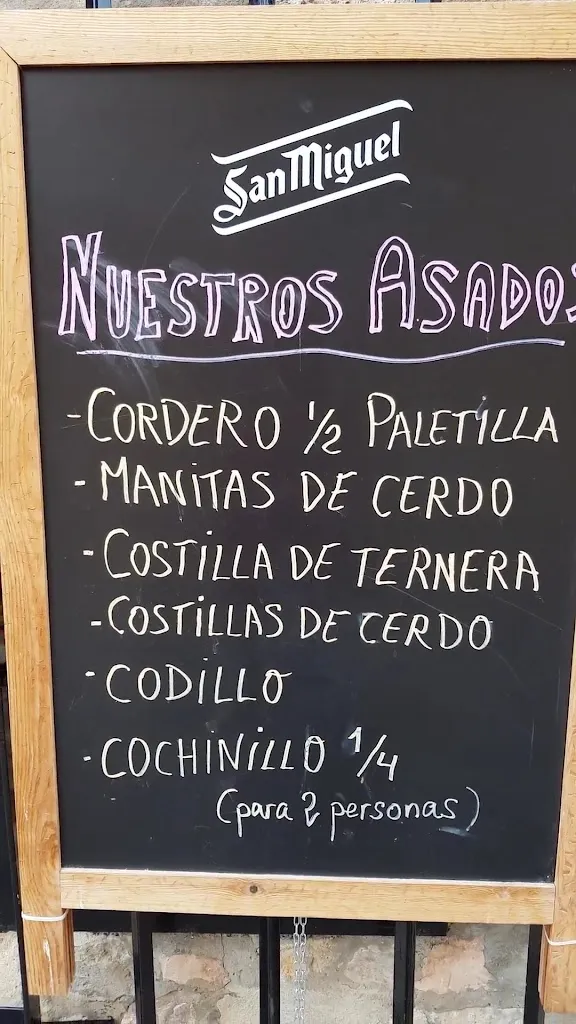 San Miguel
NUESTROS ASADOS
-CORDERO 1/2 PALETILLA
-MANITAS DE CERDO
-COSTILLA DE TERNERA
-COSTILLAS DE CERDO
-CODILLO
-COCHINILLO 1/4
(para 2 personas)